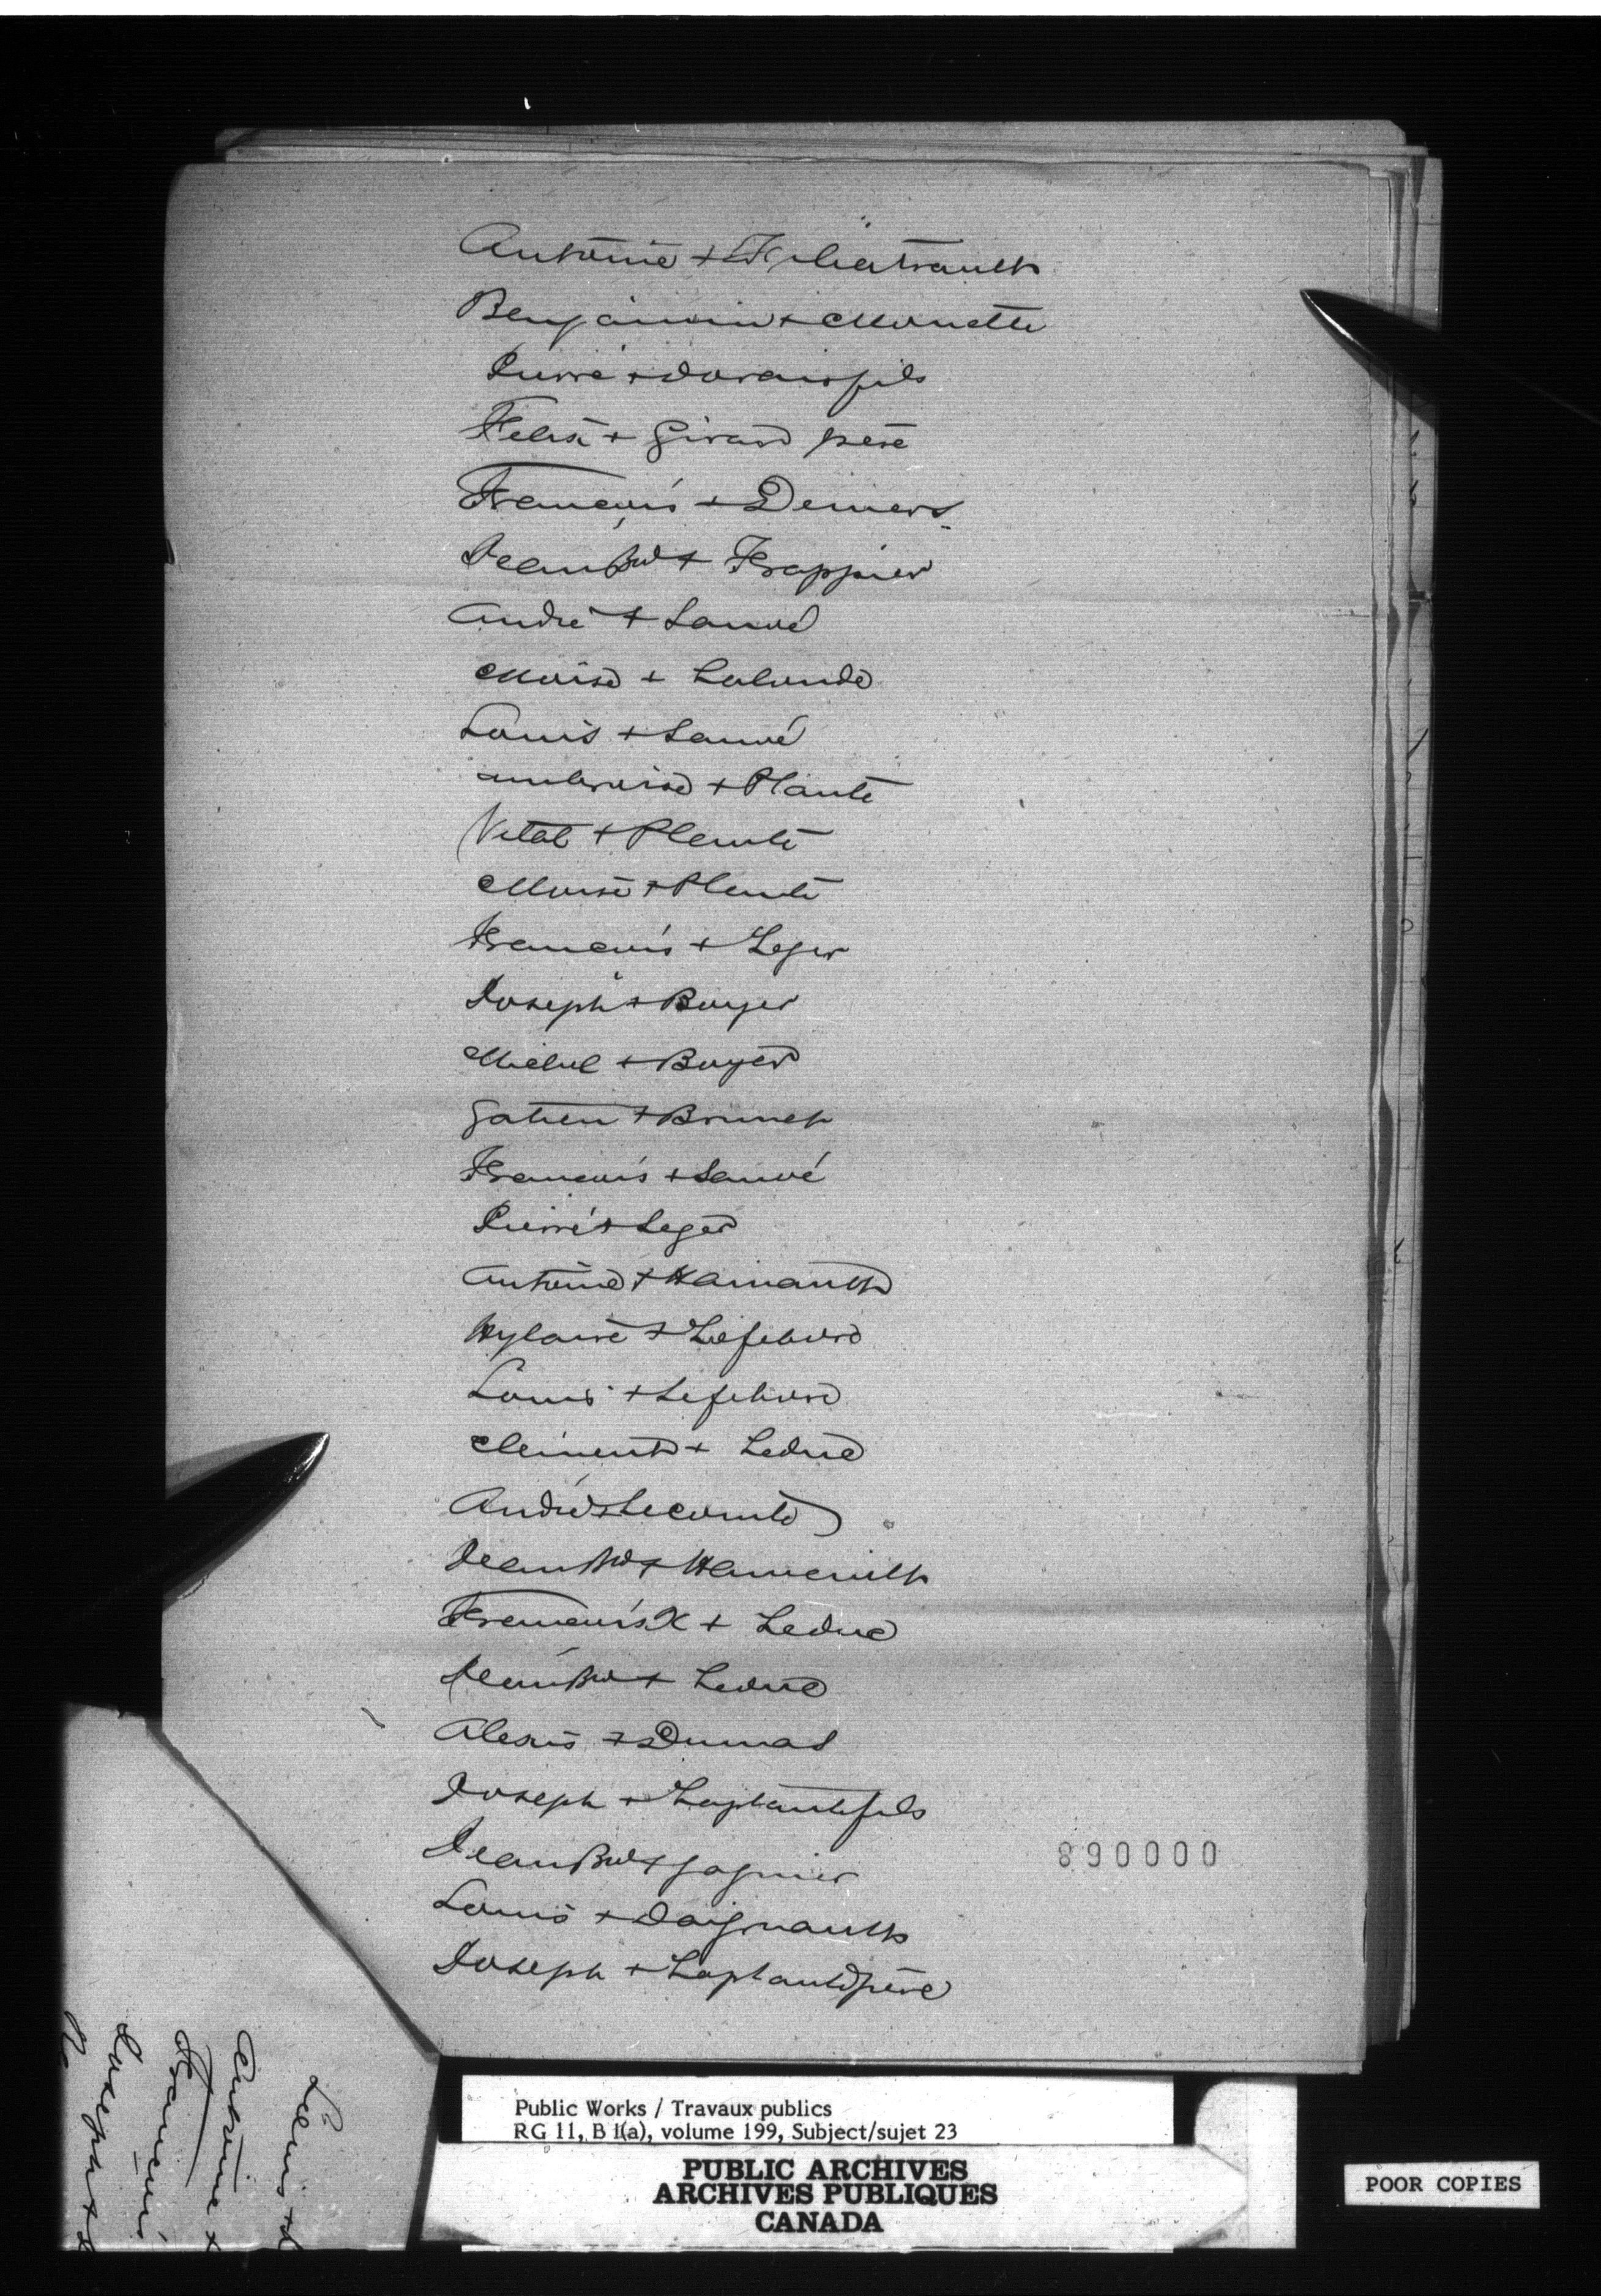 Antoine + Filiatrault
Benjamin + Monette
Pierre + Dorais fils
Felix + Girard pere
Francois + Demers
Jean Bte + Frappier
André + Sauvé
Moise + Lalonde
Louis + Sauvé
Ambroise + Plante
Vital + Plante
Moise + Plante
Francois + Leger
Joseph + Boyer
Michel + Boyer
Gatien + Brunet
Francois + Sauvé
Pierre + Leger
Antoine + Hainault
Hylaire + Lefebvre
Louis + Lefebvre
Clement + Leduc
André + Lecomte
Jean Bte + Hainault
Francois X + Leduc
Jean Bte + Leduc
Alexis + Dumas
Joseph + Laplante fils
Jean Bte + Gagnier
890000
Louis + Daignault
Joseph + Laplante père
Louis +
Antoine +
Francois
Joseph +
Public Works / Travaux publics
RG 11, B 1(a), volume 199, Subject/sujet 23
PUBLIC ARCHIVES
ARCHIVES PUBLIQUES
CANADA
POOR COPIES